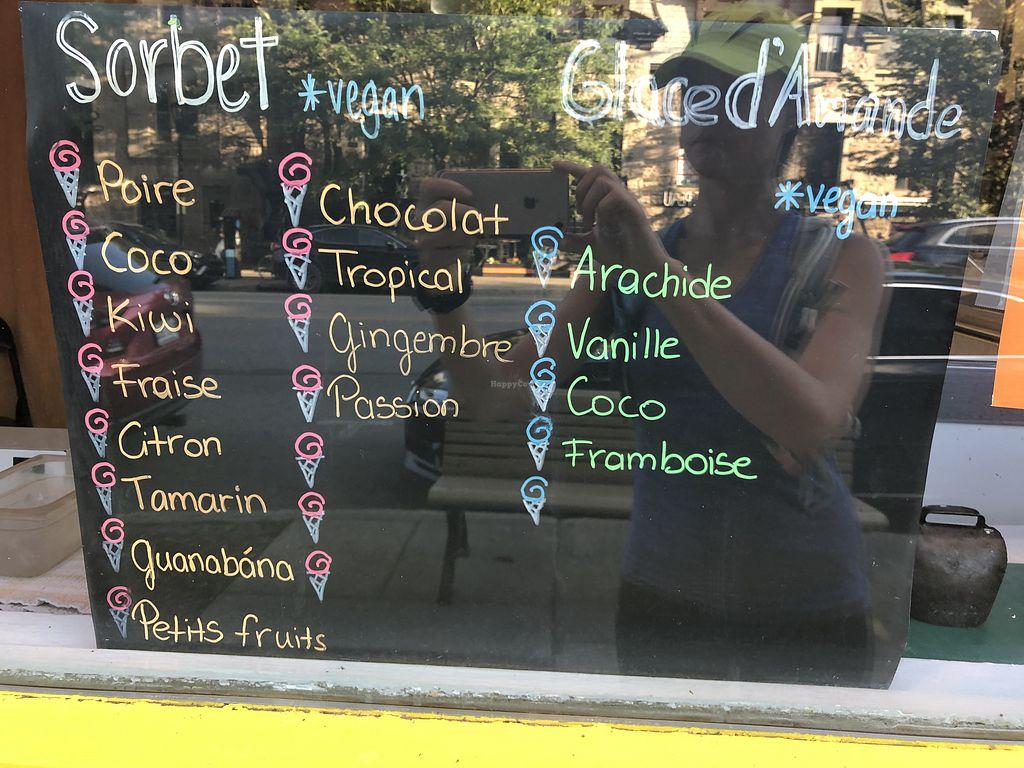 Sorbet
*vegan
Poire
Coco
Kiwi
Fraise
Citron
Tamarin
Guanabána
Petits fruits
Chocolat
Tropical
Gingembre
Passion
Glace d'Amande
*vegan
Arachide
Vanille
Coco
Framboise